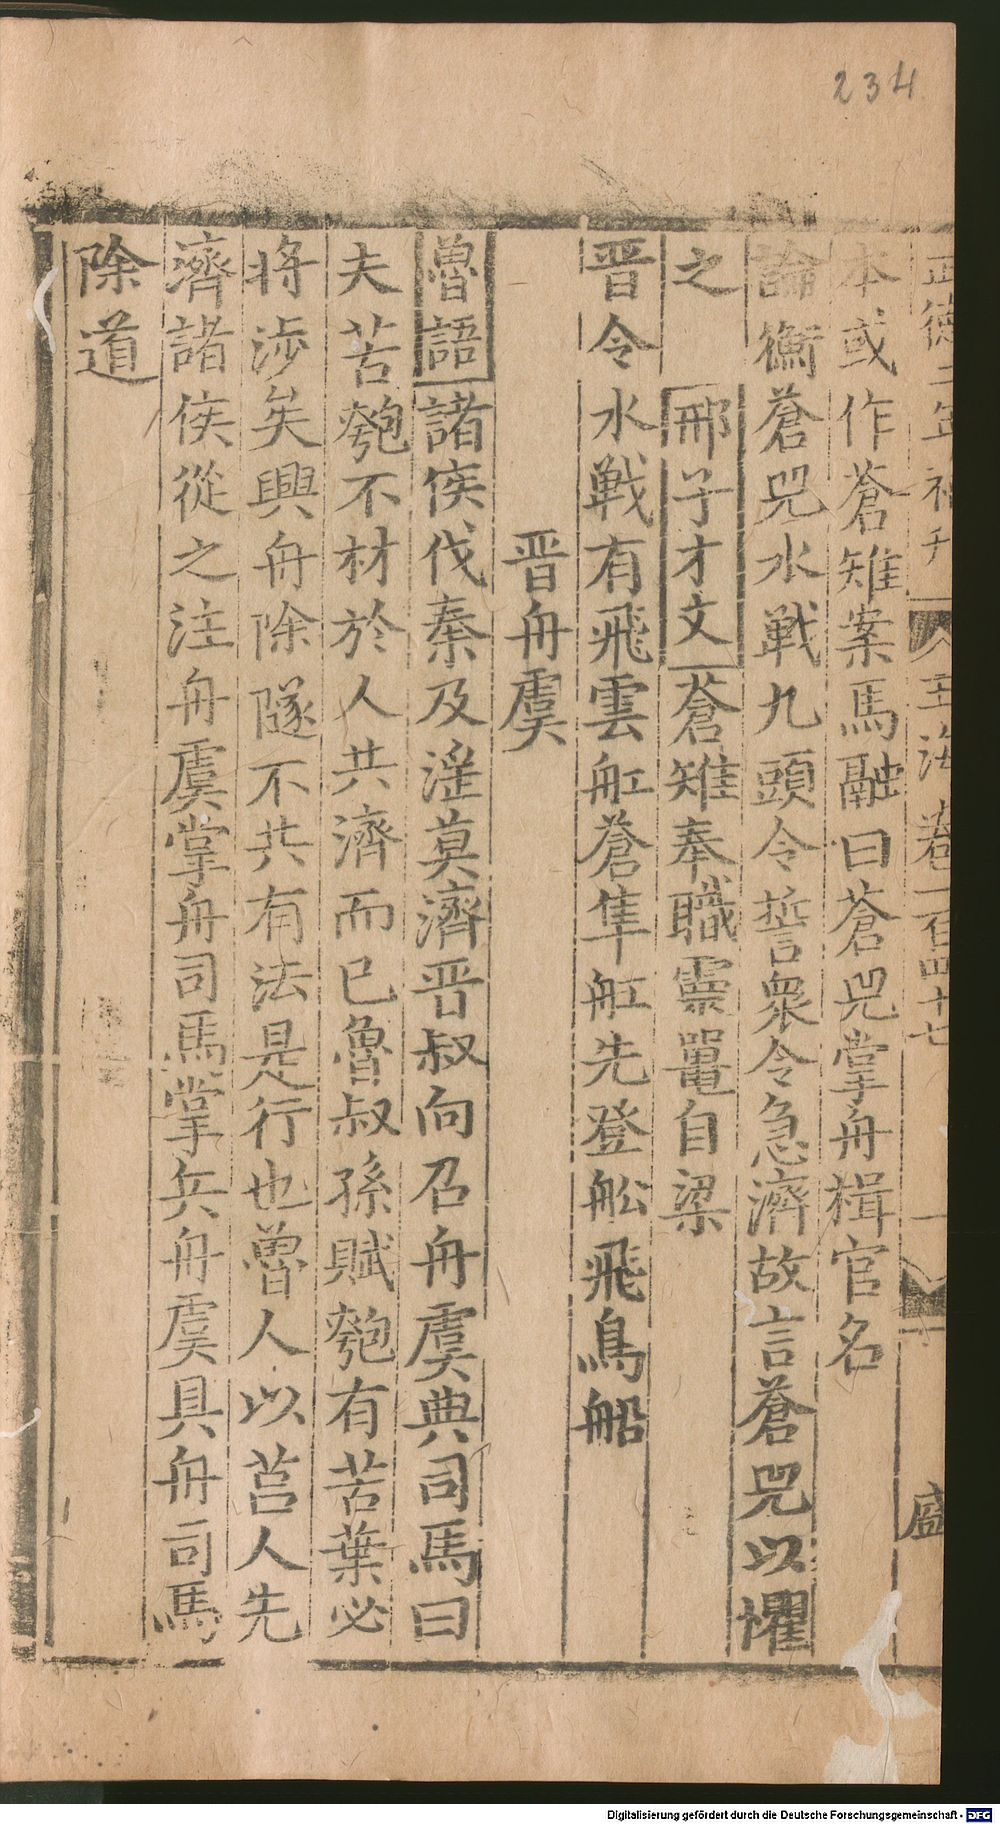 234
正德二年補刊 玉海卷一百四十七 一 盛
本或作蒼雉案馬融曰蒼兕掌舟楫官名
論衡蒼兕水戰九頭令誓衆令急濟故言蒼兕以懼
之 邢子才文蒼雉奉職靈鼉自梁
晋令水戰有飛雲舡蒼隼舡先登舩飛鳥船
晋舟虞
魯語諸侯伐秦及涇莫濟晋叔向召舟虞典司馬曰
夫苦匏不材於人共濟而已魯叔孫賦匏有苦葉必
將涉矣興舟除隧不共有法是行也魯人以莒人先
濟諸侯從之注舟虞掌舟司馬掌兵舟虞具舟司馬
除道
Digitalisierung gefördert durch die Deutsche Forschungsgemeinschaft - DFG